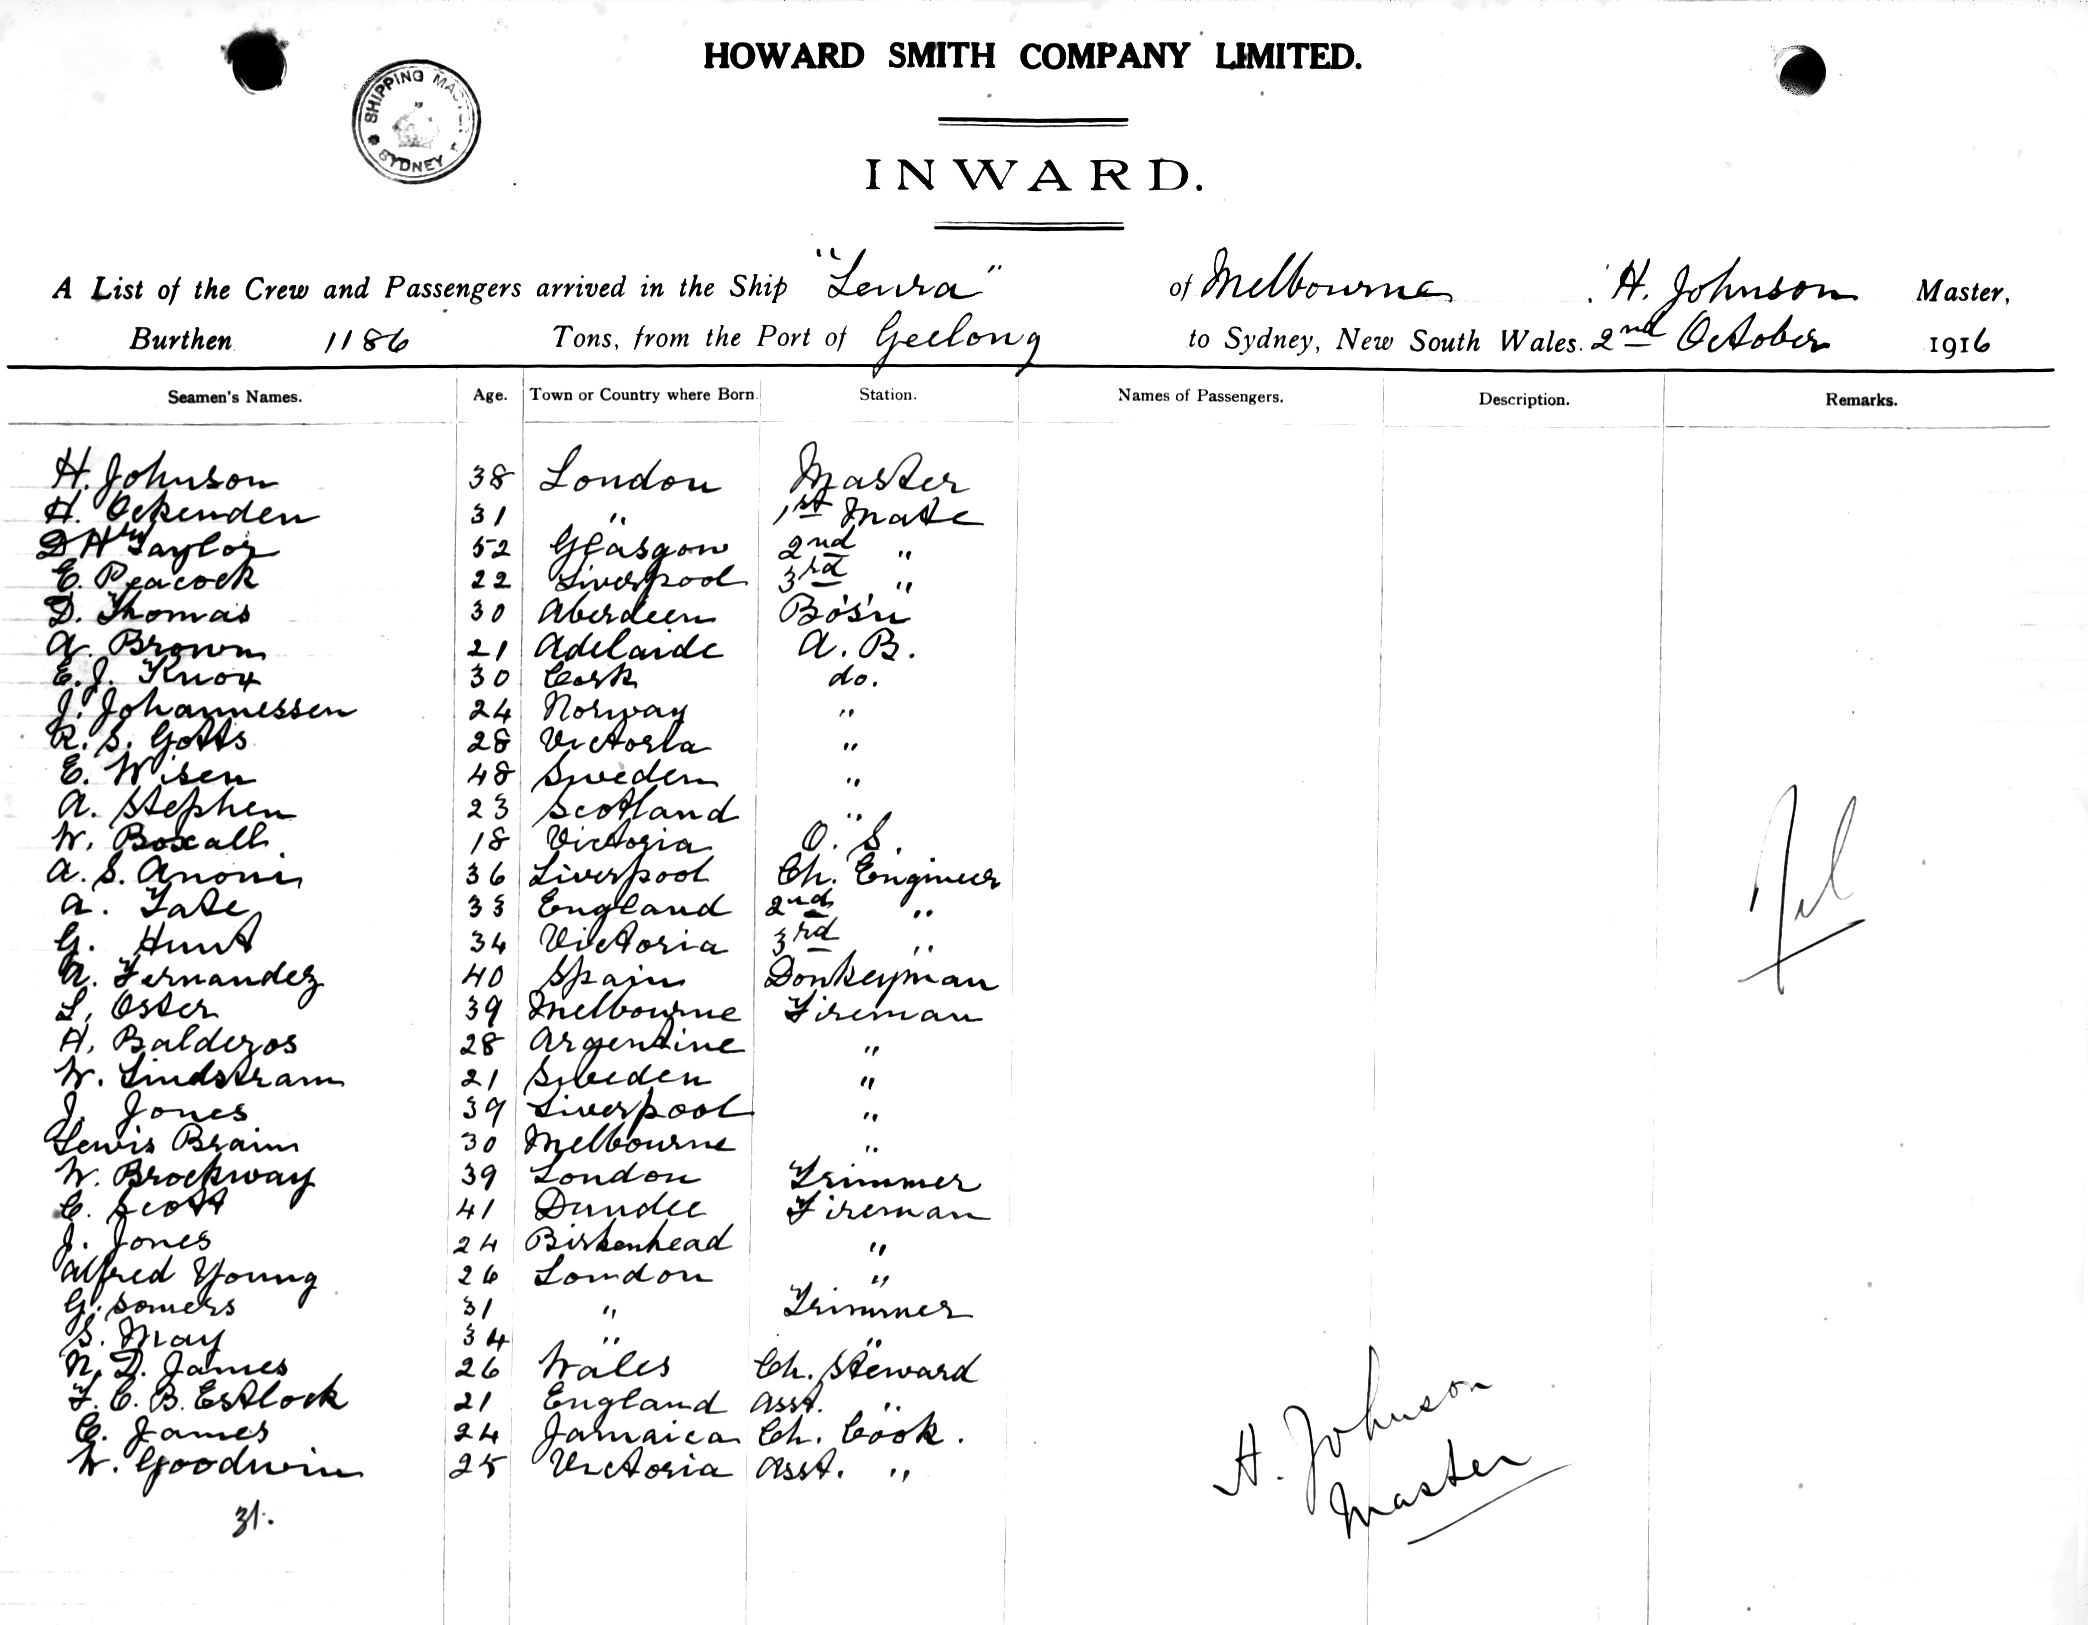 HOWARD SMITH COMPANY LIMITED.
SHIPPING MASTER SYDNEY
INWARD.
A List of the Crew and Passengers arrived in the Ship "Leura" of Melbourne, H. Johnson Master,
Burthen 1186 Tons, from the Port of Geelong to Sydney, New South Wales. 2nd October 1916
Seamen's Names. Age. Town or Country where Born. Station. Names of Passengers. Description. Remarks.
H. Johnson 38 London Master
H. Ockenden 31 " 1st Mate
D H Taylor 52 Glasgow 2nd "
E. Peacock 22 Liverpool 3rd "
D. Thomas 30 Aberdeen Bo's'n
A. Brown 21 Adelaide A. B.
E. J. Knox 30 Cork do.
J. Johannessen 24 Norway "
R. S. Gotts 28 Victoria "
E. Wisen 48 Sweden "
A. Stephen 23 Scotland "
W. Boxall 18 Victoria O. S.
A. S. 36 Liverpool Ch. Engineer
A. Tate 33 England 2nd "
G. Hunt 34 Victoria 3rd "
A. Fernandez 40 Spain Donkeyman
L. Oster 39 Melbourne Fireman
H. Balderos 28 Argentine "
W. Lindstram 21 Sweden "
J. Jones 39 Liverpool "
Lewis Brain 30 Melbourne "
W. Brockway 39 London Trimmer
C. Scott 41 Dundee Fireman
J. Jones 24 Birkenhead "
Alfred Young 26 London "
G. Somers 31 " Trimmer
S. May 34 " "
N. D. James 26 Wales Ch. Steward
F. C. B. Estlock 21 England Asst. "
C. James 24 Jamaica Ch. Cook.
W. Goodwin 25 Victoria Asst. "
31.
Nil
H. Johnson
Master